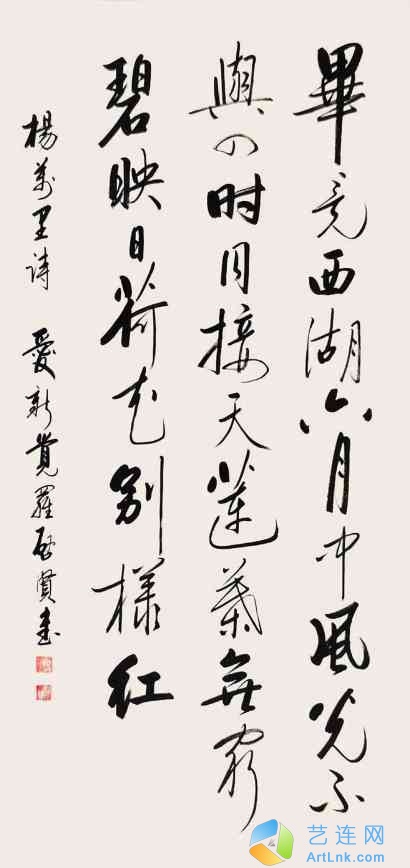 畢竟西湖六月中風光不
與四時同接天蓮葉無窮
碧映日荷花别樣红
楊萬里詩 愛新覺羅啓賁書
艺连网
ArtLnk.com